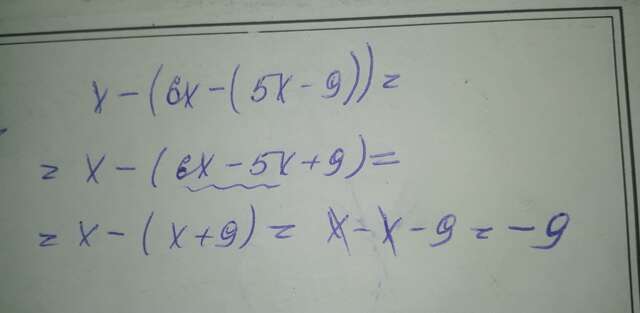 x - (6x - (5x - 9)) =
= x - (6x - 5x + 9) =
= x - (x + 9) = x - x - 9 = -9